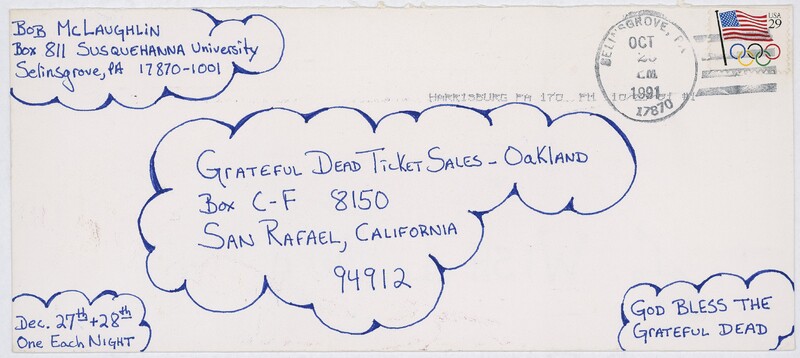 Bob McLaughlin
Box 811 Susquehanna University
Selinsgrove, PA 17870-1001
SELINSGROVE, PA
OCT
1991
17870
USA
29
HARRISBURG PA 170 PM
Grateful Dead Ticket Sales - Oakland
Box C-F 8150
San Rafael, California
94912
Dec. 27th + 28th
One Each Night
God Bless The
Grateful Dead